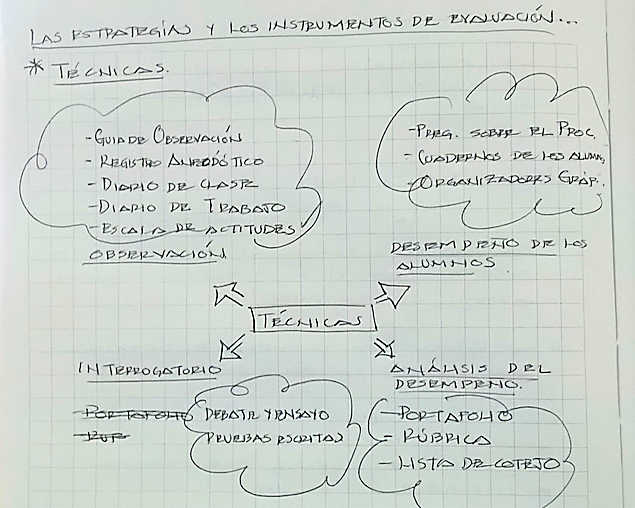 LAS ESTRATEGIAS Y LOS INSTRUMENTOS DE EVALUACIÓN...
* TÉCNICAS.
- GUIA DE OBSERVACIÓN
- REGISTRO ANECDÓTICO
- DIARIO DE CLASE
- DIARIO DE TRABAJO
- ESCALA DE ACTITUDES
OBSERVACIÓN
- PREG. SOBRE EL PROC.
- CUADERNOS DE LOS ALUMN.
- ORGANIZADORES GRÁF.
DESEMPEÑO DE LOS
ALUMNOS.
TÉCNICAS
INTERROGATORIO
PORTAFOLIO
RUB
DEBATE Y ENSAYO
PRUEBAS ESCRITAS
ANÁLISIS DEL
DESEMPEÑO.
- PORTAFOLIO
- RÚBRICA
- LISTA DE COTEJO